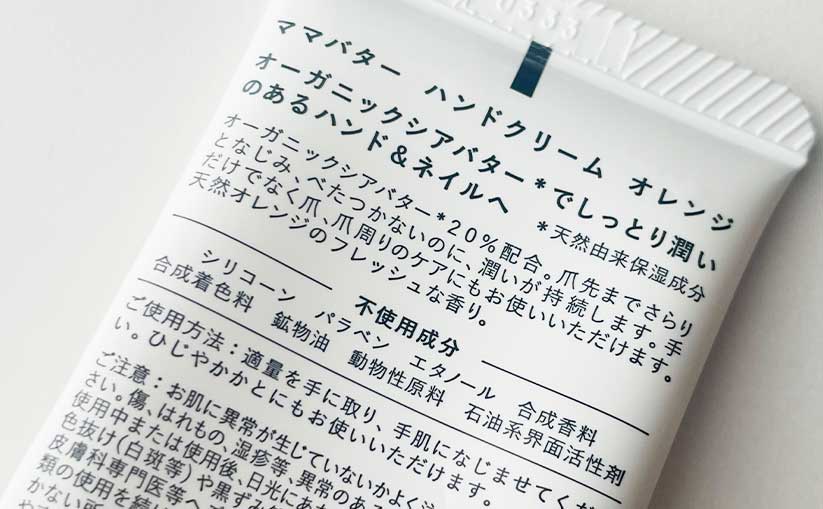 0333
ママバター ハンドクリーム オレンジ
オーガニックシアバター*でしっとり潤い
のあるハンド&ネイルへ *天然由来保湿成分
オーガニックシアバター*20%配合。爪先までさらり
となじみ、べたつかないのに、潤いが持続します。手
だけでなく爪、爪周りのケアにもお使いいただけます。
天然オレンジのフレッシュな香り。
不使用成分
シリコーン パラベン エタノール 合成香料
合成着色料 鉱物油 動物性原料 石油系界面活性剤
ご使用方法:適量を手に取り、手肌になじませてくだ
い。ひじやかかとにもお使いいただけます。
ご注意:お肌に異常が生じていないかよく注
さい。傷、はれもの、湿疹等、異常のある
使用中または使用後、日光にあた
色抜け(白斑等)や黒ずみ
皮膚科専門医等へ
類の使用を続け
かない所